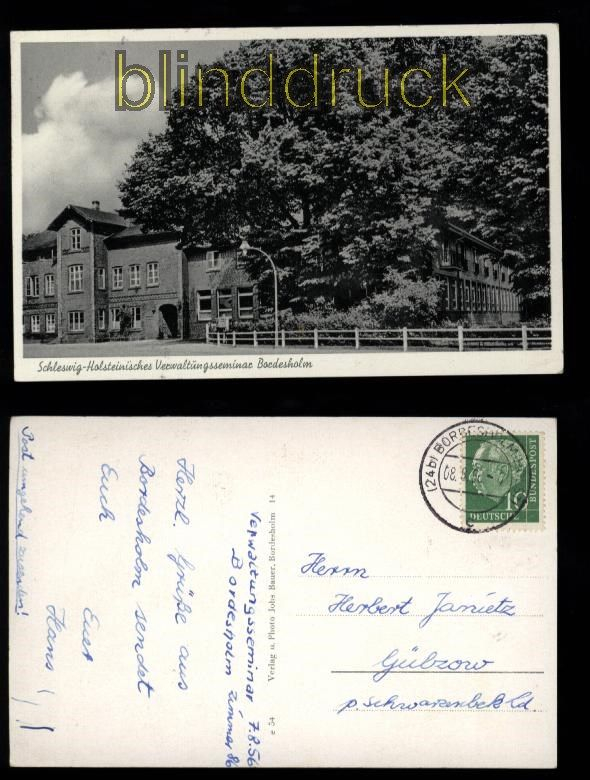 blinddruck
Schleswig-Holsteinisches Verwaltungsseminar Bordesholm
Post umgehend zusenden!
Herzl. Grüße aus
Bordesholm sendet
Euch
Euer
Hans
Verwaltungsseminar 7.8.56
Bordesholm Zimmer 86
Verlag u. Photo Johs Bauer, Bordesholm 14
e 54
(24b) BORDESHOLM
08.8.56
10
DEUTSCHE
BUNDESPOST
Herrn
Herbert Janietz
Gülzow
p. Schwarzenbek Ld.